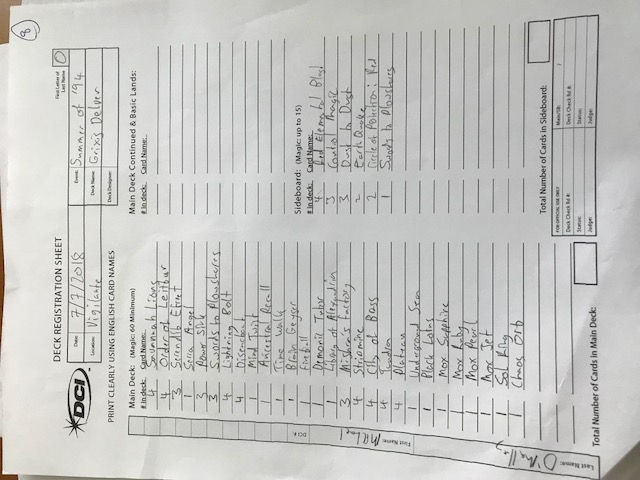 8
DECK REGISTRATION SHEET
First Letter of Last Name O
DCI
Date: 7/7/2018
Event: Summer of '94
Location: Vigilante
Deck Name: Grixis Delver
Deck Designer:
PRINT CLEARLY USING ENGLISH CARD NAMES
Main Deck: (Magic: 60 Minimum)
# in deck: Card Name:
4 Savannah Lions
4 Order of Leitbur
3 Serendib Efreet
1 Serra Angel
3 Power Sink
3 Swords to Plowshares
4 Lightning Bolt
4 Disenchant
1 Mind Twist
1 Ancestral Recall
1 Time Walk
1 Brain Geyser
1 Fireball
1 Demonic Tutor
1 Library of Alexandria
3 Mishra's Factory
4 Stripmine
4 City of Brass
4 Tundra
4 Plateau
1 Underground Sea
1 Black Lotus
1 Mox Sapphire
1 Mox Ruby
1 Mox Pearl
1 Mox Jet
1 Sol Ring
1 Chaos Orb
Total Number of Cards in Main Deck:
Main Deck Continued & Basic Lands:
# in deck: Card Name:
Sideboard: (Magic: up to 15)
# in deck: Card Name:
4 Red Elemental Blast
3 Control Magic
3 Dust to Dust
2 EarthQuake
2 Circle of Protection: Red
1 Swords to Plowshares
Total Number of Cards in Sideboard:
FOR OFFICIAL USE ONLY
Main/SB: /
Deck Check Rd #:
Deck Check Rd #:
Status:
Status:
Judge:
Judge:
DCI #:
First Name:
Last Name: O'Malley